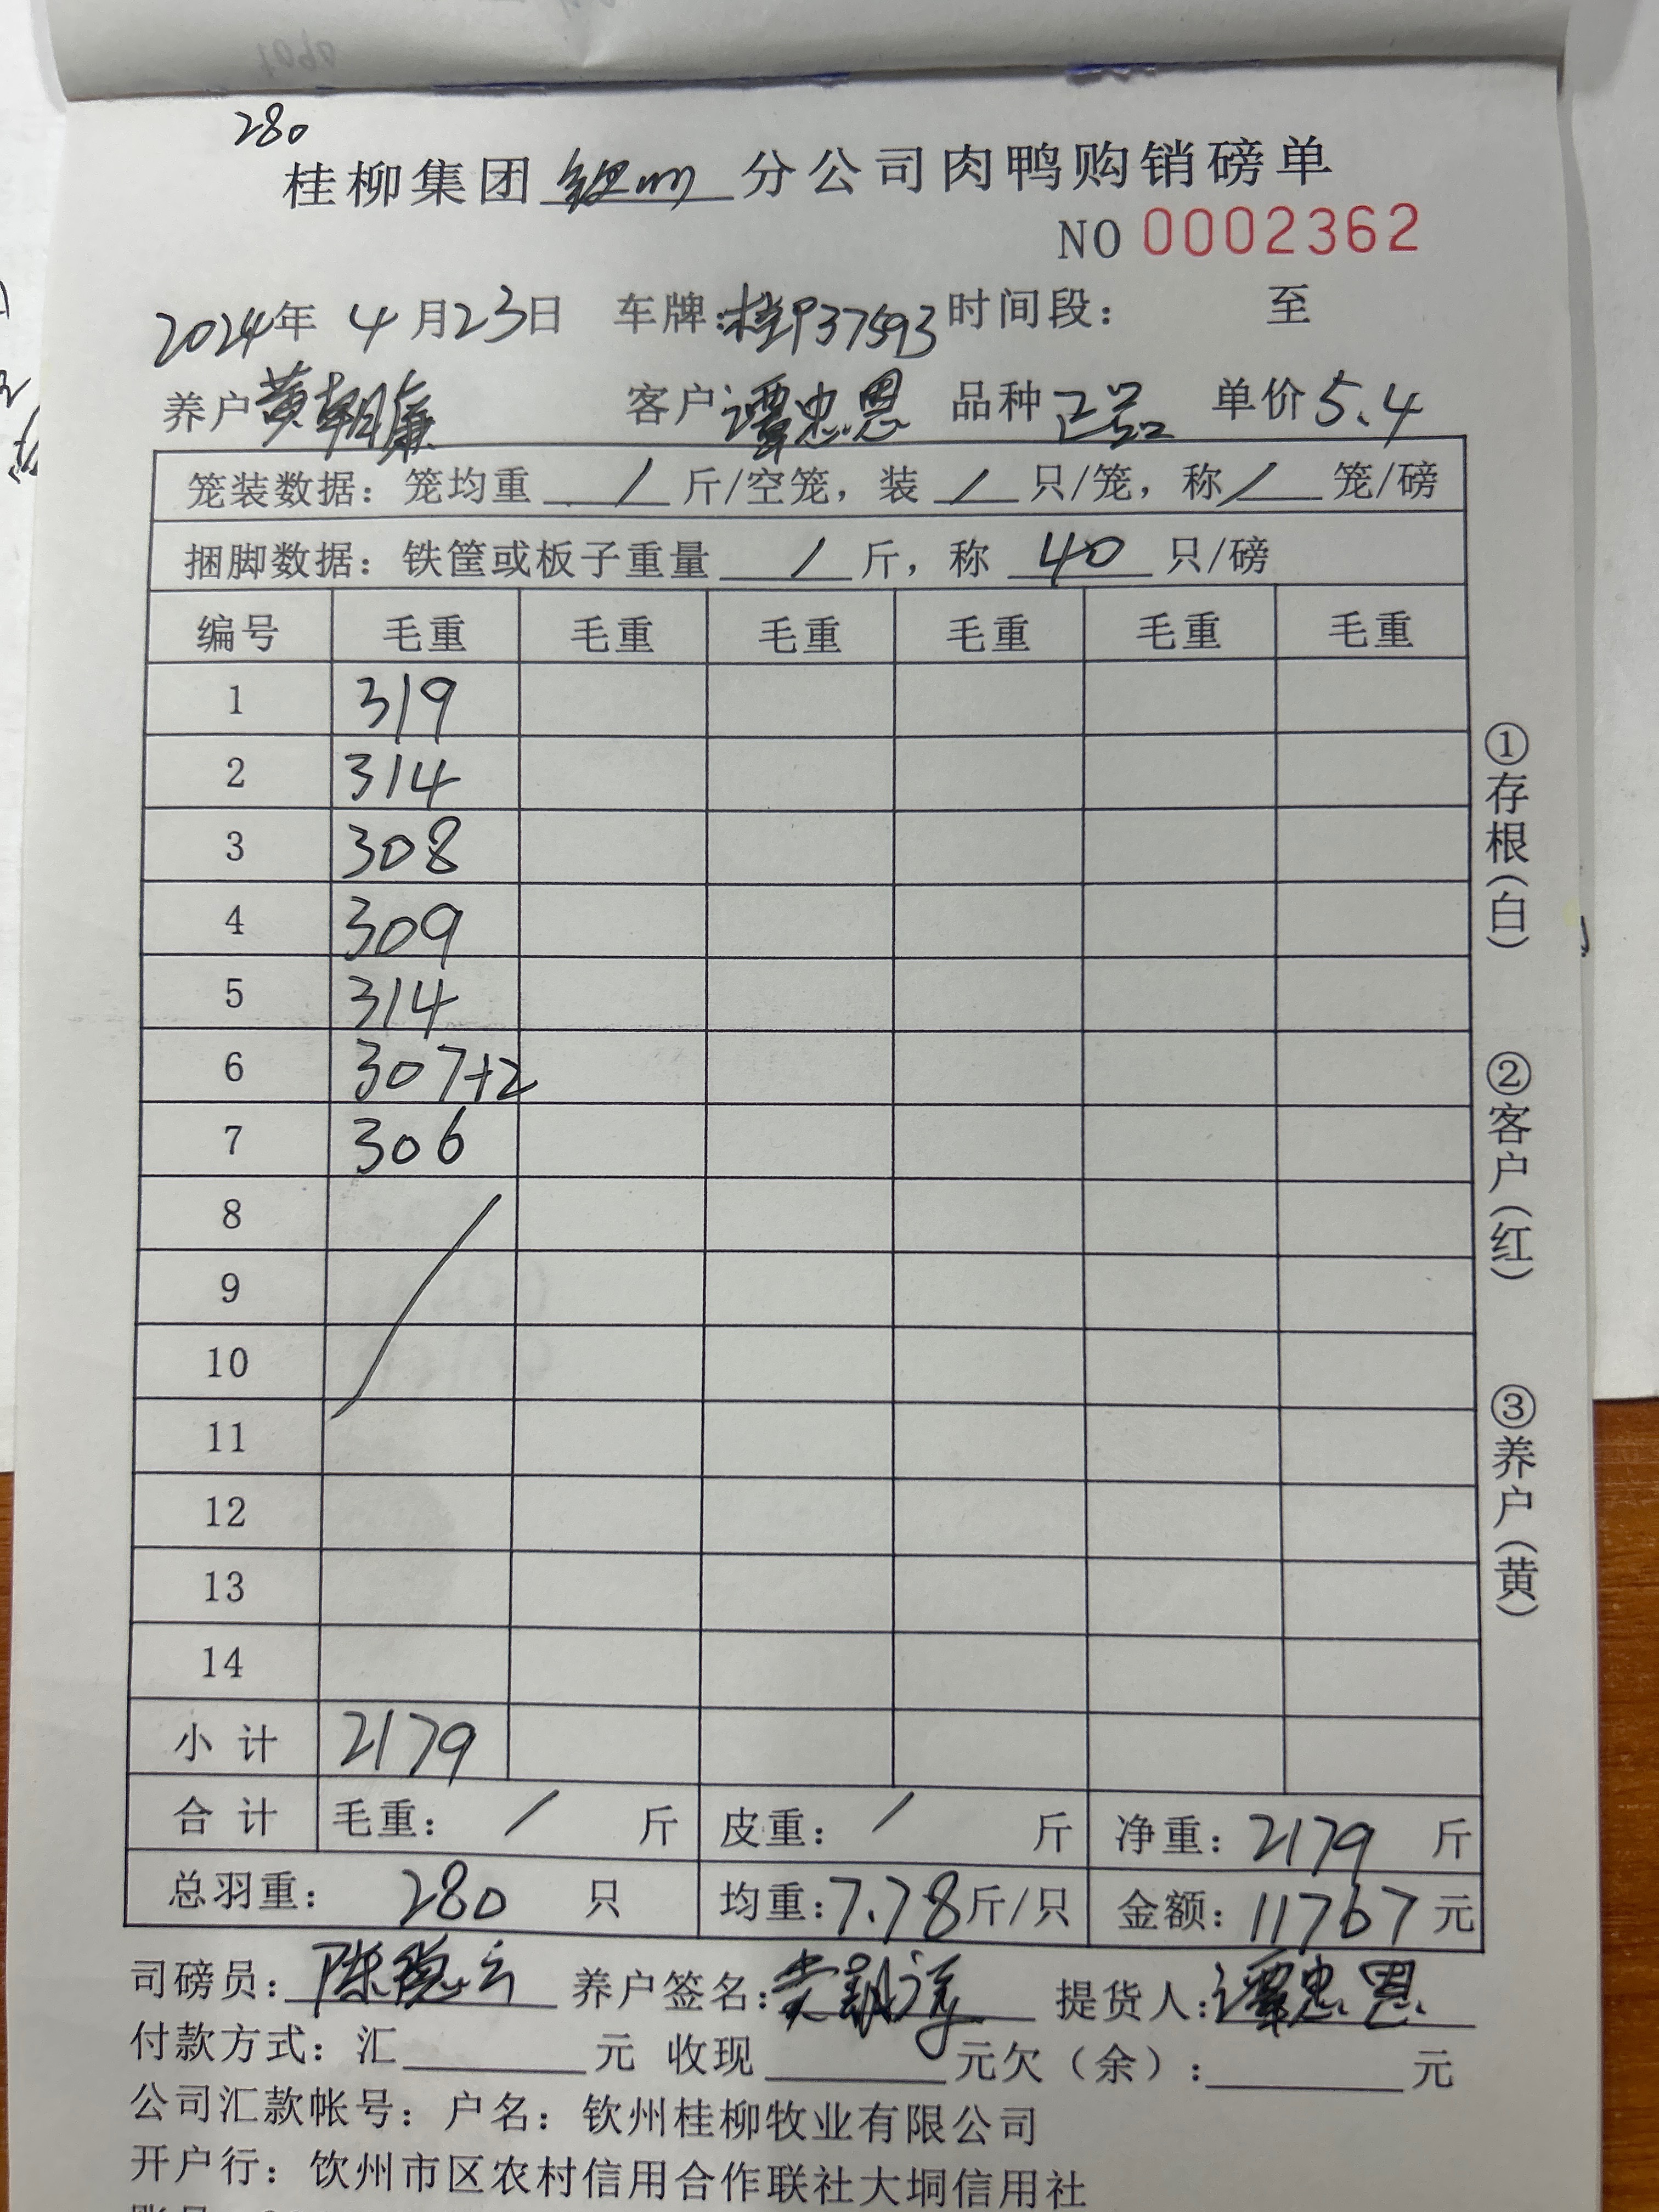 280
桂柳集团钦州分公司肉鸭购销磅单
NO 0002362
2024年 4月23日 车牌:桂P37593 时间段: 至
养户 黄朝廉 客户 谭忠恩 品种 正品 单价 5.4
笼装数据: 笼均重 / 斤/空笼, 装 / 只/笼, 称 / 笼/磅
捆脚数据: 铁筐或板子重量 / 斤, 称 40 只/磅
编号 毛重 毛重 毛重 毛重 毛重 毛重
1 319
2 314
3 308
4 309
5 314
6 307+2
7 306
8
9
10
11
12
13
14
小计 2179
合计 毛重: / 斤 皮重: / 斤 净重: 2179 斤
总羽重: 280 只 均重: 7.78 斤/只 金额: 11767 元
司磅员: 养户签名: 提货人: 谭忠恩
付款方式: 汇 元 收现 元欠(余): 元
公司汇款帐号: 户名: 钦州桂柳牧业有限公司
开户行: 饮州市区农村信用合作联社大垌信用社
①存根(白)
②客户(红)
③养户(黄)